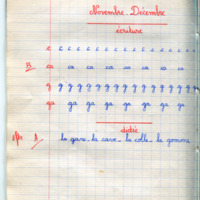 Novembre - Décembre
écriture
c c c c c c c c c c c c c
B. ca ca ca ca ca ca ca
g g g g g g g g g g g g g g
ga ga ga ga ga ga ga
dictée
A. la gare - la cave - la colle - la gomme